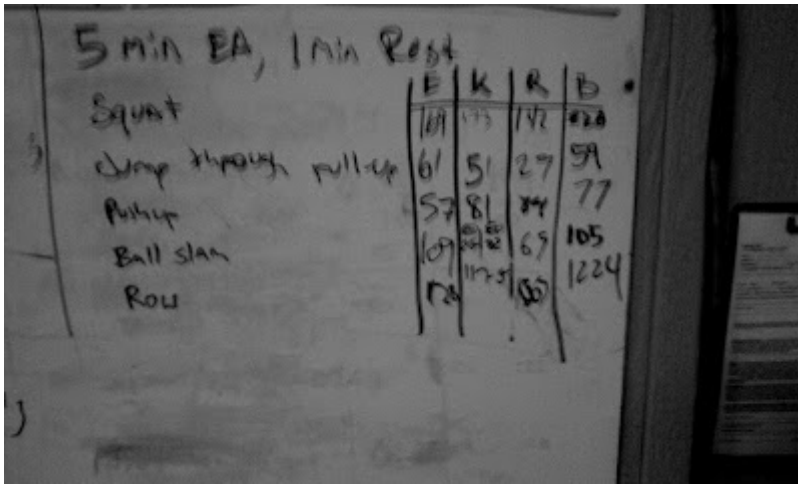 5 min EA, 1 min Rest
E K R B
Squat 169 173 142
Jump through pull-up 61 51 27 59
Pushup 57 81 77
Ball slam 109 69 105
Row 1224